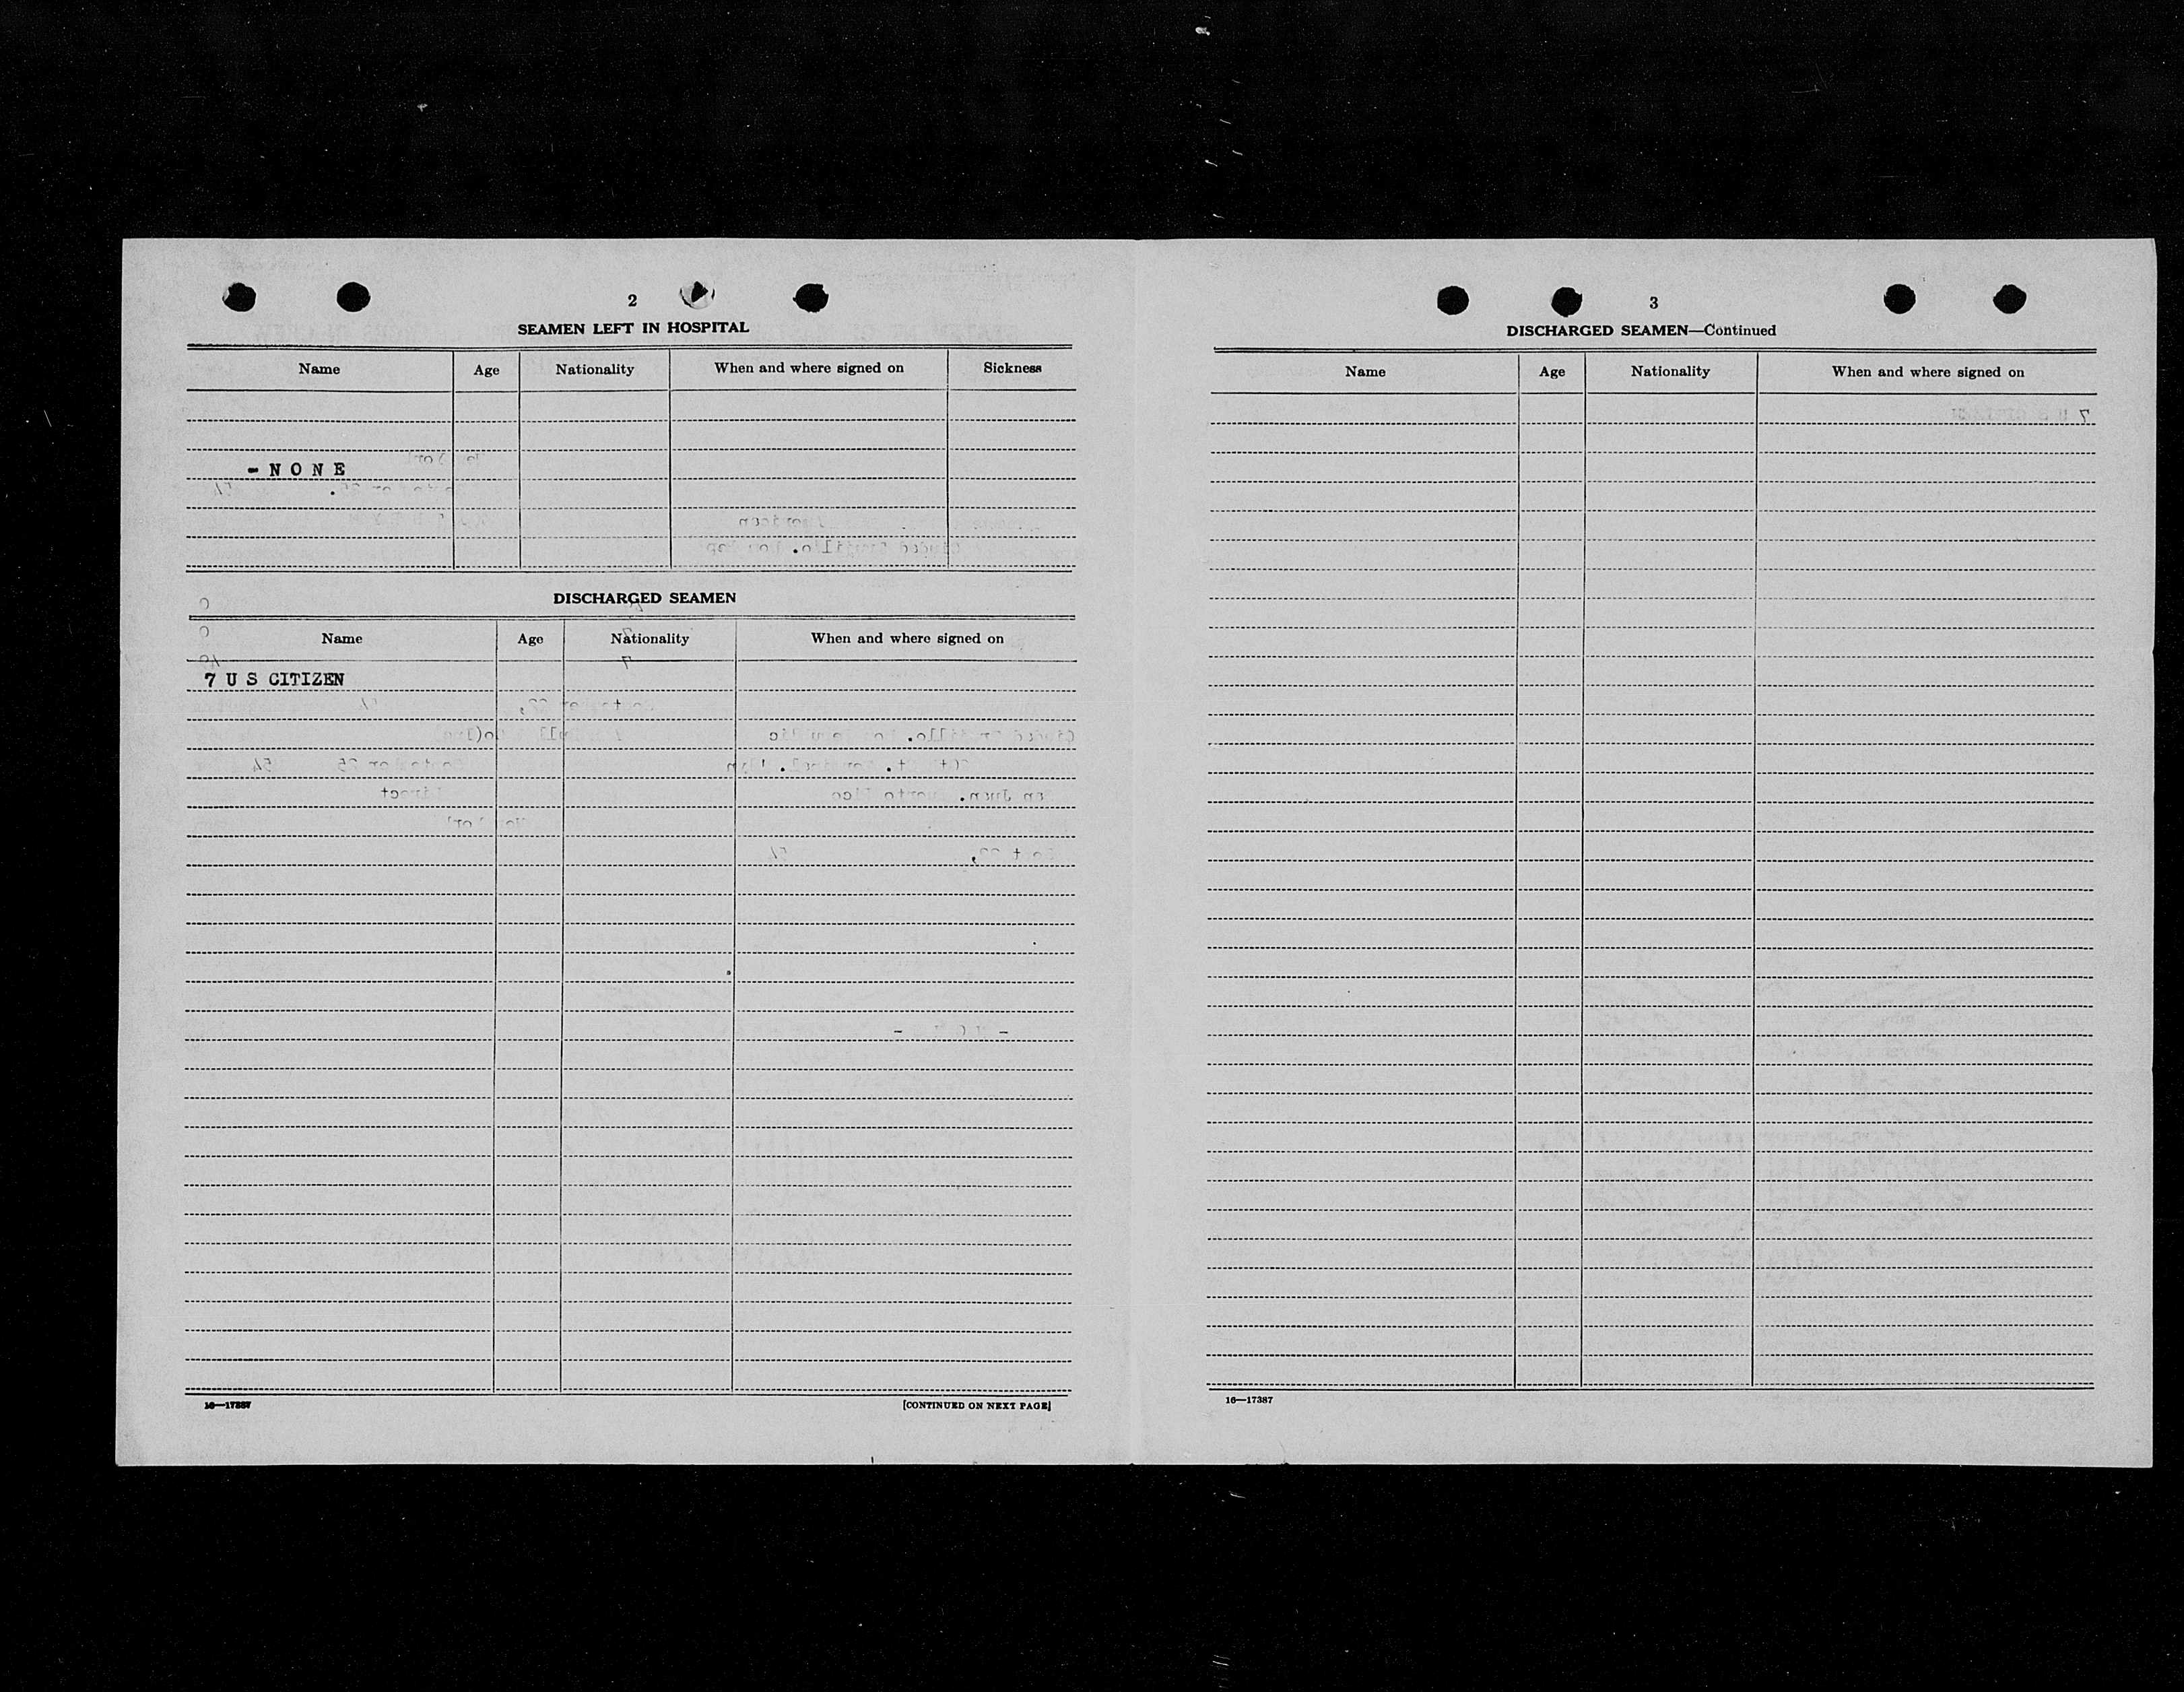 2
SEAMEN LEFT IN HOSPITAL
Name Age Nationality When and where signed on Sickness
- N O N E
DISCHARGED SEAMEN
Name Age Nationality When and where signed on
7 U S CITIZEN
16—17387 [CONTINUED ON NEXT PAGE]
3
DISCHARGED SEAMEN—Continued
Name Age Nationality When and where signed on
16—17387